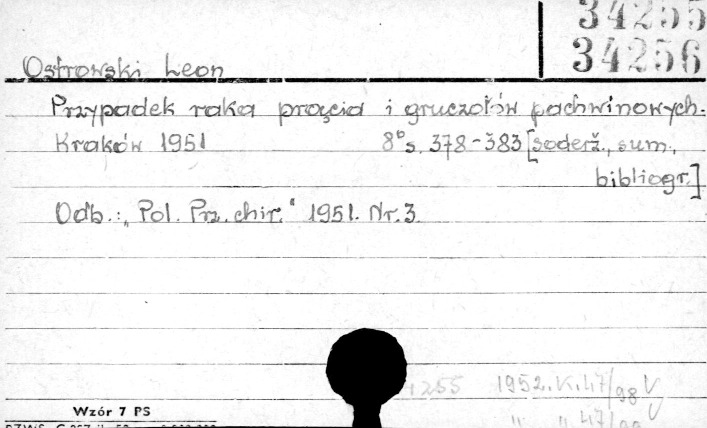 34255
34256
Ostrowski Leon
Przypadek raka prącia i gruczołów pachwinowych.
Kraków 1951 8° s. 378-383 [soderž., sum.,
bibliogr.]
Odb.: „Pol. Prz. chir." 1951. Nr. 3
1255 1952.K.47/98 V
" " 47/99 V
Wzór 7 PS